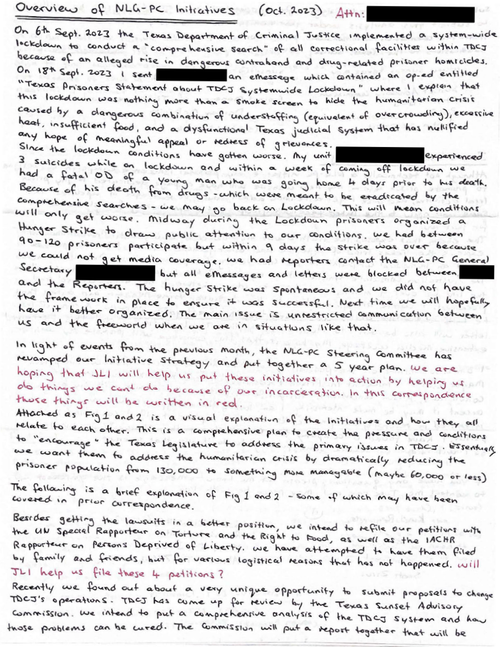 Overview of NLG-PC Initiatives (Oct. 2023) Attn:
On 6th Sept. 2023 the Texas Department of Criminal Justice implemented a system-wide
lockdown to conduct a "comprehensive search" of all correctional facilities within TDCJ
because of an alleged rise in dangerous contraband and drug-related prisoner homicides.
On 18th Sept. 2023 I sent an eMessage which contained an op-ed entitled
"Texas Prisoners Statement about TDCJ Systemwide Lockdown" where I explain that
this lockdown was nothing more than a smoke screen to hide the humanitarian crisis
caused by a dangerous combination of understaffing (equivalent of overcrowding), excessive
heat, insufficient food, and a dysfunctional Texas judicial system that has nullified
any hope of meaningful appeal or redress of grievances.
Since the lockdown conditions have gotten worse. My unit experienced
3 suicides while on lockdown and within a week of coming off lockdown we
had a fatal OD of a young man who was going home 4 days prior to his death.
Because of his death from drugs - which were meant to be eradicated by the
comprehensive searches - we may go back on Lockdown. This will mean conditions
will only get worse. Midway during the Lockdown prisoners organized a
Hunger Strike to draw public attention to our conditions. We had between
90-120 prisoners participate but within 9 days the strike was over because
we could not get media coverage. We had reporters contact the NLG-PC General
Secretary but all eMessages and letters were blocked between
and the Reporters. The hunger Strike was spontaneous and we did not have
the framework in place to ensure it was successful. Next time we will hopefully
have it better organized. The main issue is unrestricted communication between
us and the freeworld when we are in situations like that.
In light of events from the previous month, the NLG-PC Steering Committee has
revamped our Initiative Strategy and put together a 5 year plan. We are
hoping that JLI will help us put these initiatives into action by helping us
do things we cant do because of our incarceration. In this correspondence
those things will be written in red.
Attached as Fig 1 and 2 is a visual explanation of the Initiatives and how they all
relate to each other. This is a comprehensive plan to create the pressure and conditions
to "encourage" the Texas Legislature to address the primary issues in TDCJ. Essentially
we want them to address the humanitarian crisis by dramatically reducing the
prisoner population from 130,000 to something more manageable (maybe 60,000 or less)
The following is a brief explanation of Fig 1 and 2 - some of which may have been
covered in prior correspondence.
Besides getting the lawsuits in a better position, we intend to refile our petitions with
the UN Special Rapporteur on Torture and the Right to Food, as well as the IACHR
Rapporteur on Persons Deprived of Liberty. We have attempted to have them filed
by family and friends, but for various logistical reasons that has not happened. Will
JLI help us file these 4 petitions?
Recently we found out about a very unique opportunity to submit proposals to change
TDCJ's operations. TDCJ has come up for review by the Texas Sunset Advisory
Commission. We intend to put a comprehensive analysis of the TDCJ system and how
those problems can be cured. The Commission will put a report together that will be